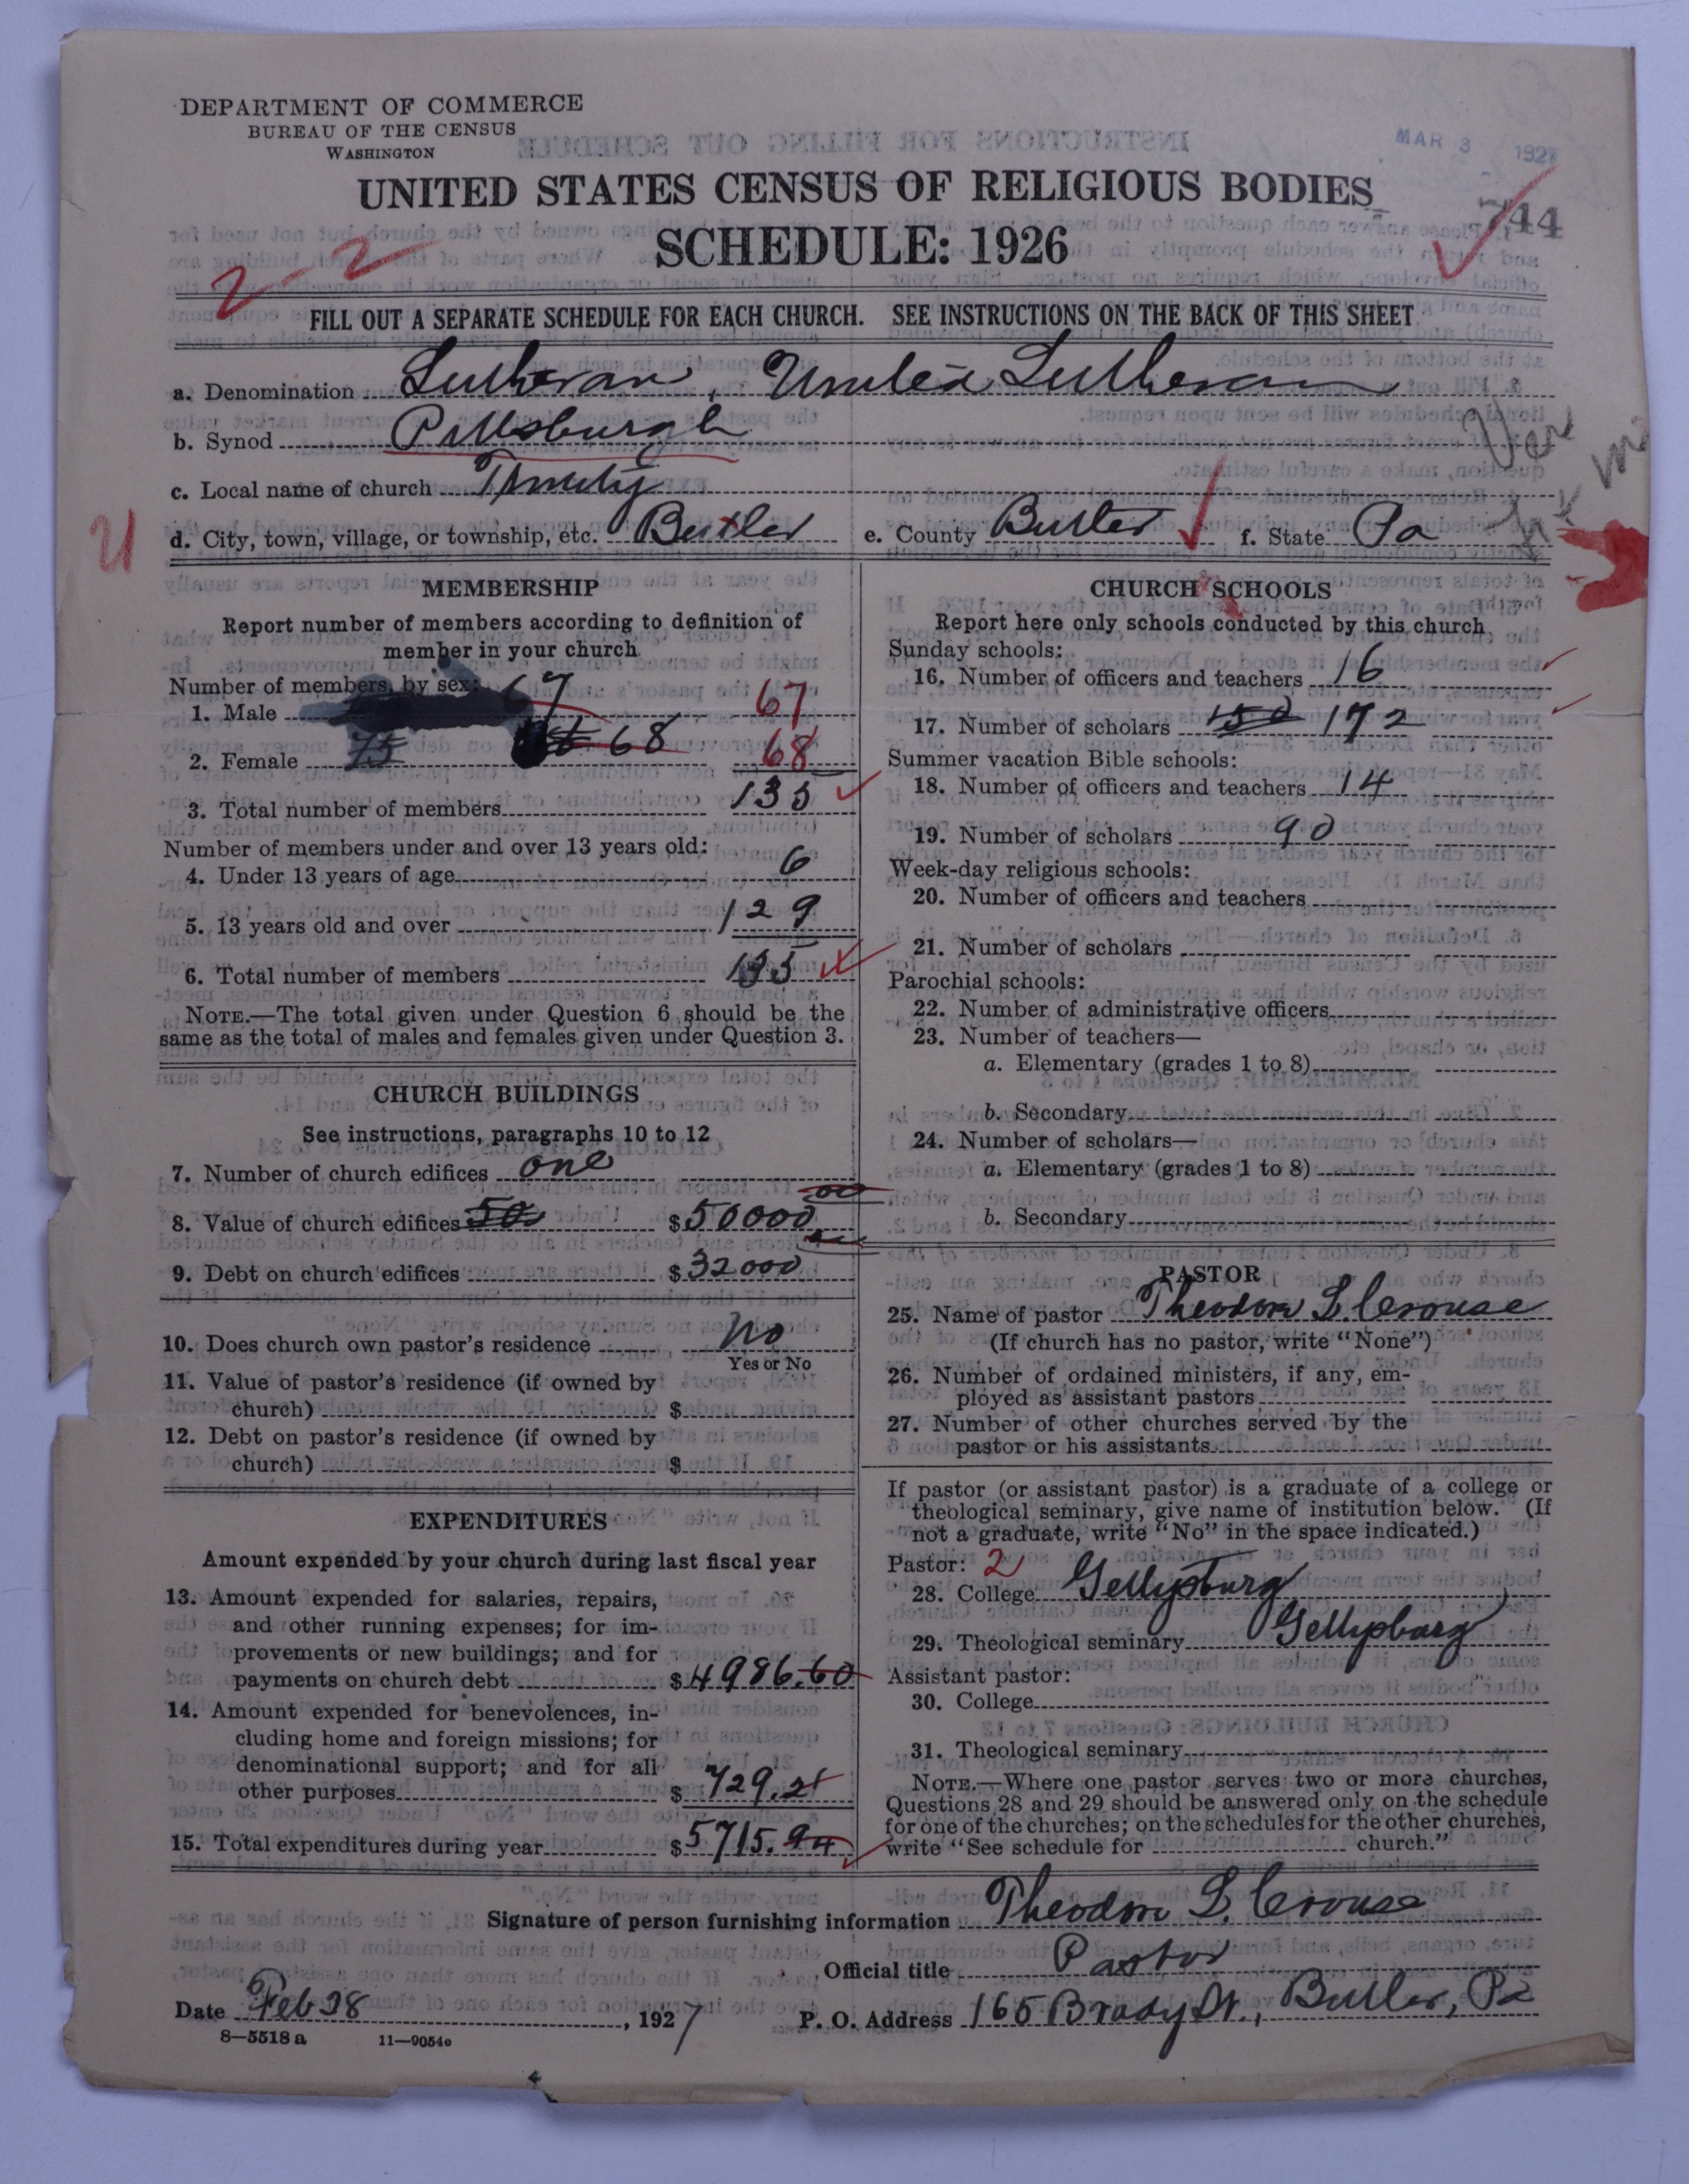 DEPARTMENT OF COMMERCE
BUREAU OF THE CENSUS
WASHINGTON
MAR 3 1927
UNITED STATES CENSUS OF RELIGIOUS BODIES
SCHEDULE: 1926
744
2-2
FILL OUT A SEPARATE SCHEDULE FOR EACH CHURCH. SEE INSTRUCTIONS ON THE BACK OF THIS SHEET
a. Denomination Lutheran, United Lutheran
b. Synod Pittsburgh
c. Local name of church Trinity
d. City, town, village, or township, etc. Butler e. County Butler f. State Pa
MEMBERSHIP
Report number of members according to definition of
member in your church
Number of members, by sex:
1. Male 67 67
2. Female 75 68 68
3. Total number of members 135
Number of members under and over 13 years old:
4. Under 13 years of age 6
5. 13 years old and over 129
6. Total number of members 135
NOTE.—The total given under Question 6 should be the
same as the total of males and females given under Question 3.
CHURCH BUILDINGS
See instructions, paragraphs 10 to 12
7. Number of church edifices one
8. Value of church edifices 50 $50000 00
9. Debt on church edifices $32000 00
10. Does church own pastor's residence No
Yes or No
11. Value of pastor's residence (if owned by
church) $
12. Debt on pastor's residence (if owned by
church) $
EXPENDITURES
Amount expended by your church during last fiscal year
13. Amount expended for salaries, repairs,
and other running expenses; for im-
provements or new buildings; and for
payments on church debt $4986.60
14. Amount expended for benevolences, in-
cluding home and foreign missions; for
denominational support; and for all
other purposes $729.21
15. Total expenditures during year $5715.94
CHURCH SCHOOLS
Report here only schools conducted by this church
Sunday schools:
16. Number of officers and teachers 16
17. Number of scholars 150 172
Summer vacation Bible schools:
18. Number of officers and teachers 14
19. Number of scholars 90
Week-day religious schools:
20. Number of officers and teachers
21. Number of scholars
Parochial schools:
22. Number of administrative officers
23. Number of teachers—
a. Elementary (grades 1 to 8)
b. Secondary
24. Number of scholars—
a. Elementary (grades 1 to 8)
b. Secondary
PASTOR
25. Name of pastor Theodore L. Crouse
(If church has no pastor, write "None")
26. Number of ordained ministers, if any, em-
ployed as assistant pastors
27. Number of other churches served by the
pastor or his assistants
If pastor (or assistant pastor) is a graduate of a college or
theological seminary, give name of institution below. (If
not a graduate, write "No" in the space indicated.)
Pastor: 2
28. College Gettysburg
29. Theological seminary Gettysburg
Assistant pastor:
30. College
31. Theological seminary
NOTE.—Where one pastor serves two or more churches,
Questions 28 and 29 should be answered only on the schedule
for one of the churches; on the schedules for the other churches,
write "See schedule for church."
Signature of person furnishing information Theodore L. Crouse
Official title Pastor
Date Feb 28, 1927 P. O. Address 165 Brady St., Butler, Pa
8—5518 a 11—9054c